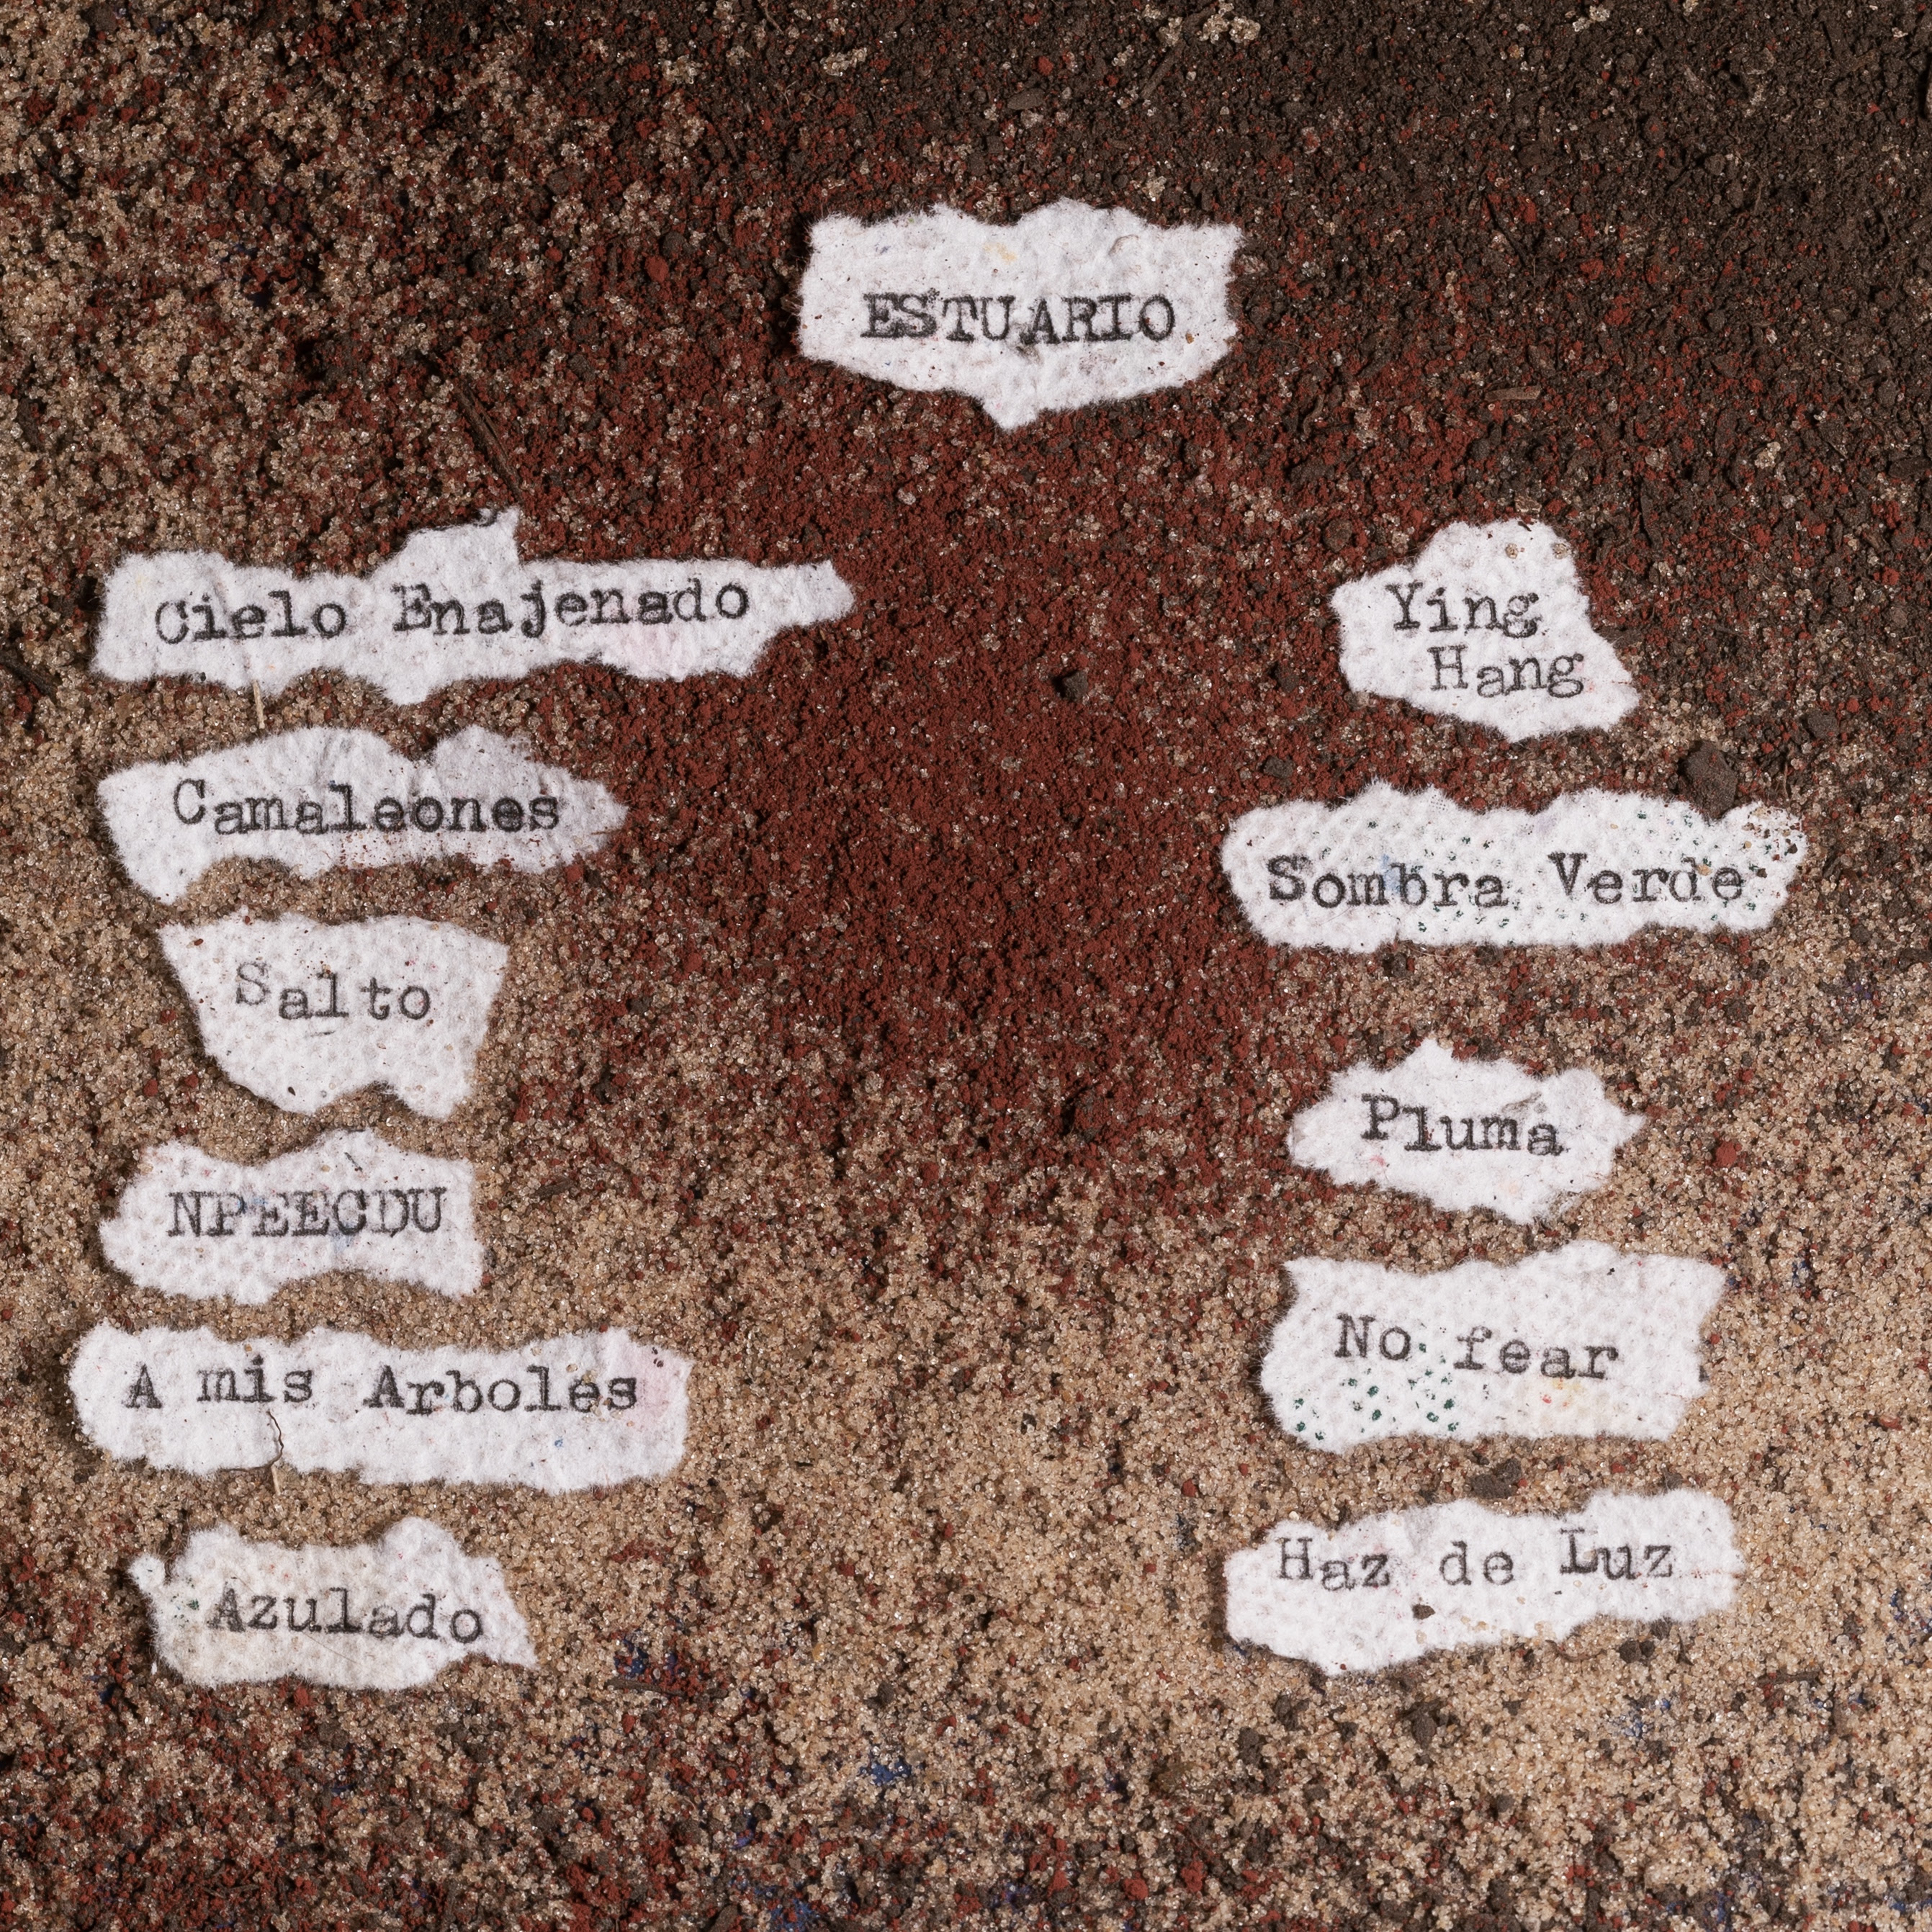 ESTUARIO
Cielo Enajenado
Camaleones
Salto
NPEECDU
A mis Arboles
Azulado
Ying
Hang
Sombra Verde
Pluma
No fear
Haz de Luz